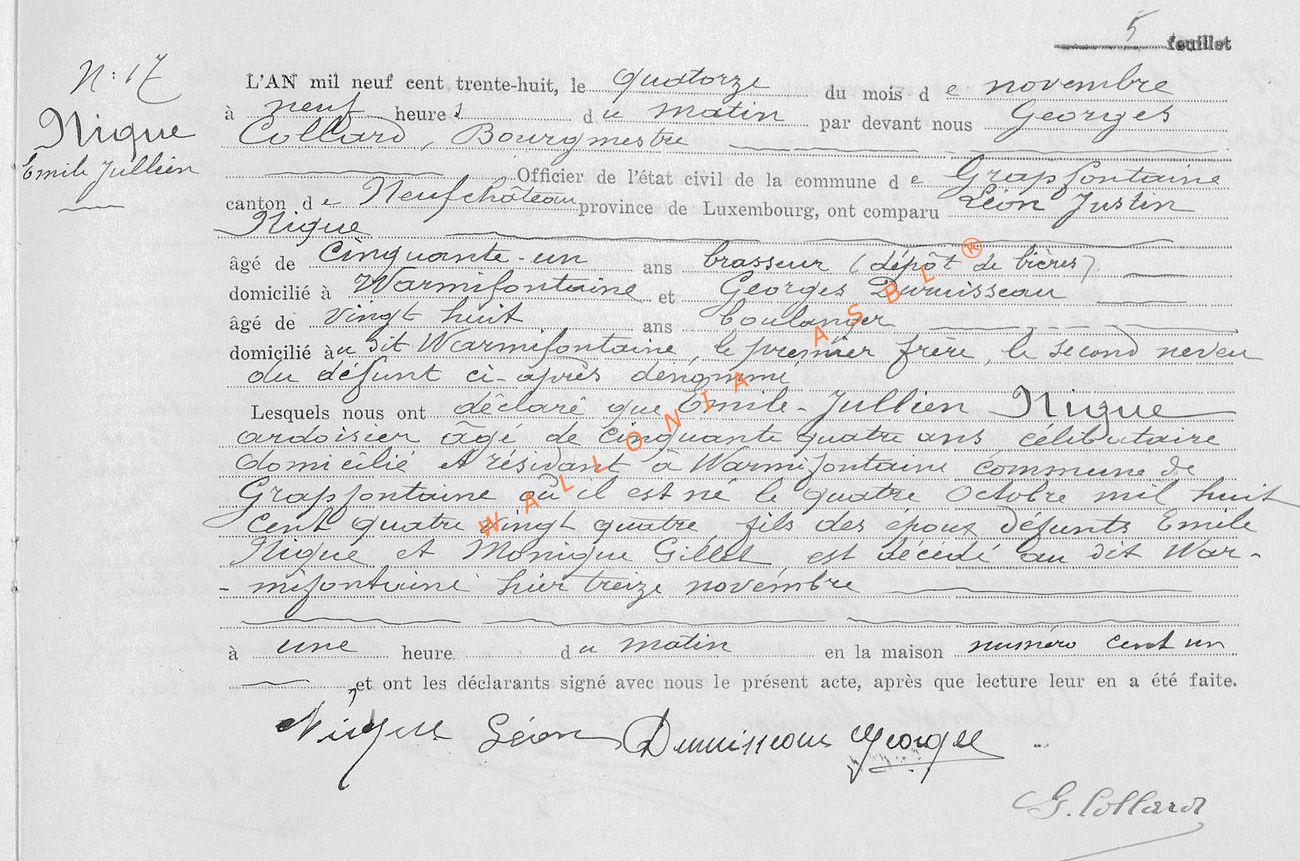 5 feuillet
N: 17
Nique
Emile Jullien
L'AN mil neuf cent trente-huit, le quatorze du mois d e novembre
à neuf heure s du matin par devant nous Georges
Collard, Bourgmestre
Officier de l'état civil de la commune d e Grapfontaine
canton d e Neufchâteau province de Luxembourg, ont comparu Léon Justin
Nique
âgé de cinquante-un ans brasseur (dépôt de bières)
domicilié à Warmifontaine et Georges Dumisseau
âgé de vingt huit ans boulanger
domicilié àu dit Warmifontaine, le premier frère, le second neveu
du défunt ci-après dénommé
Lesquels nous ont déclaré que Emile-Jullien Nique
ardoisier âgé de cinquante quatre ans célibataire
domicilié et résidant à Warmifontaine commune de
Grapfontaine où il est né le quatre octobre mil huit
cent quatre vingt quatre fils des époux défunts Emile
Nique et Monique Gillet est décédé au dit War-
-mifontaine hier treize novembre
à une heure du matin en la maison numéro cent un
, et ont les déclarants signé avec nous le présent acte, après que lecture leur en a été faite.
Nique Léon Dumisseau Georges
G. Collard
WALLONIA ASBL ®